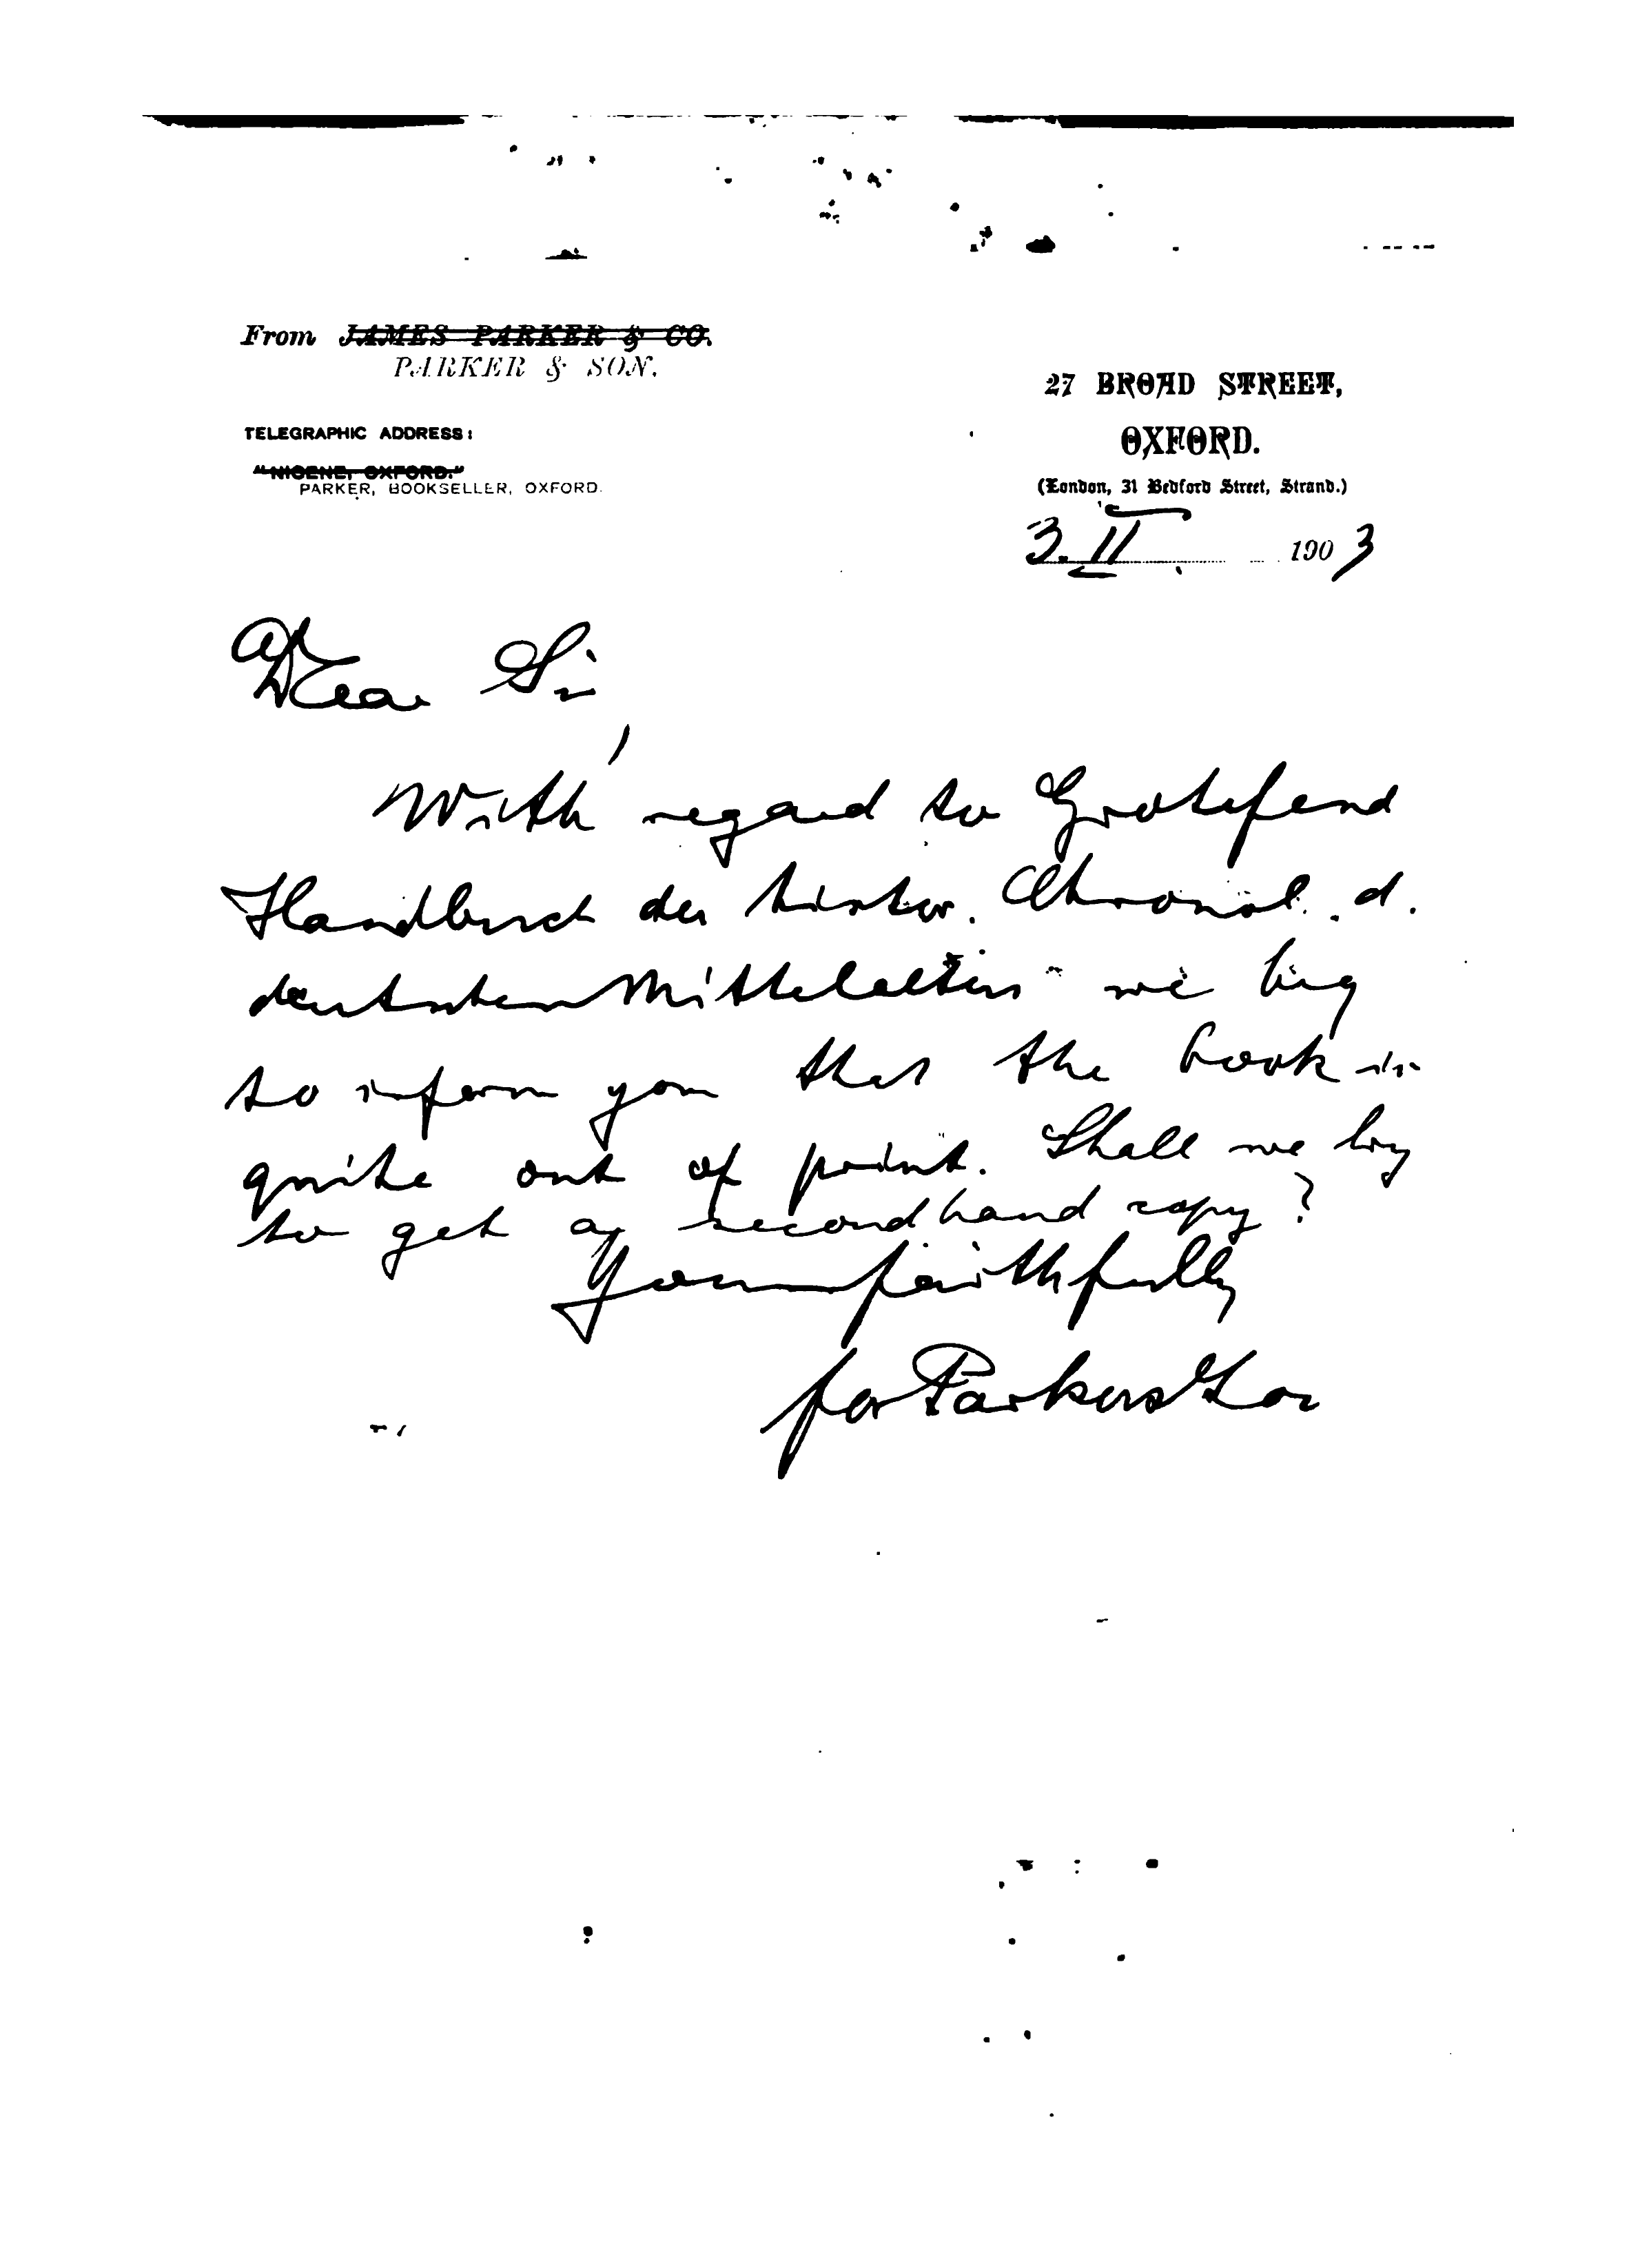 From JAMES PARKER & CO.
PARKER & SON.
TELEGRAPHIC ADDRESS:
"NICENE, OXFORD."
PARKER, BOOKSELLER, OXFORD.
27 BROAD STREET,
OXFORD.
(London, 31 Bedford Street, Strand.)
3. II 1903
Dear Sir,
With regard to Grotefend
Handbuch der histor. Chronol. d.
deutschen Mittelalters we beg
to inform you that the book is
quite out of print. Shall we try
to get a secondhand copy?
Yours faithfully
for Parker & Son